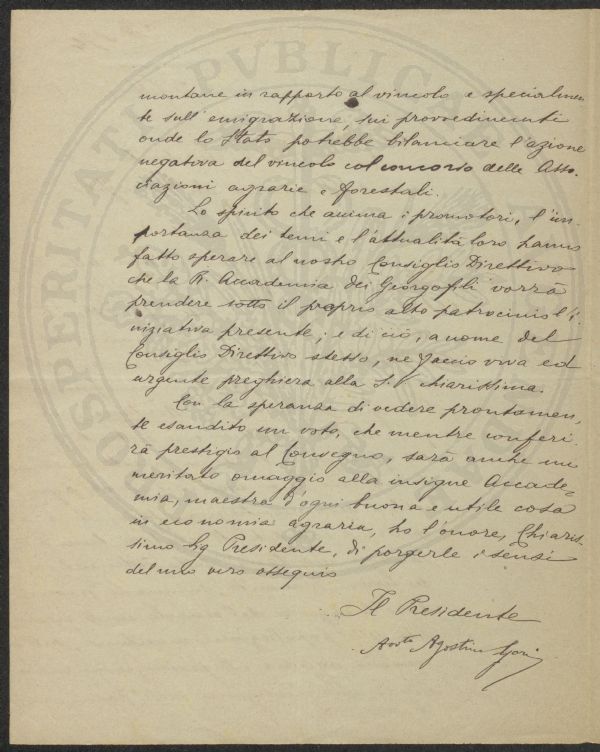 montane in rapporto al vincolo e specialmen
te sull'emigrazione, sui provvedimenti
onde lo Stato potrebbe bilanciare l'azione
negativa del vincolo col concorso delle Asso-
ciazioni agrarie e forestali.
Lo spirito che anima i promotori, l'im-
portanza dei temi e l'attualità loro hanno
fatto sperare al nostro Consiglio Direttivo
che la R. Accademia dei Georgofili vorrà
prendere sotto il proprio alto patrocinio l'i-
niziativa presente; e di ciò, a nome del
Consiglio Direttivo stesso, ne faccio viva ed
urgente preghiera alla S.V. Chiarissima.
Con la speranza di vedere prontamen-
te esaudito un voto, che mentre conferi-
rà prestigio al Convegno, sarà anche un
meritato omaggio alla insigne Accade-
mia, maestra d'ogni buona e utile cosa
in economia agraria, ho l'onore, Chiaris-
simo Sig Presidente, di porgerle i sensi
del mio vero ossequio
Il Presidente
Agostino
PVBLICAE